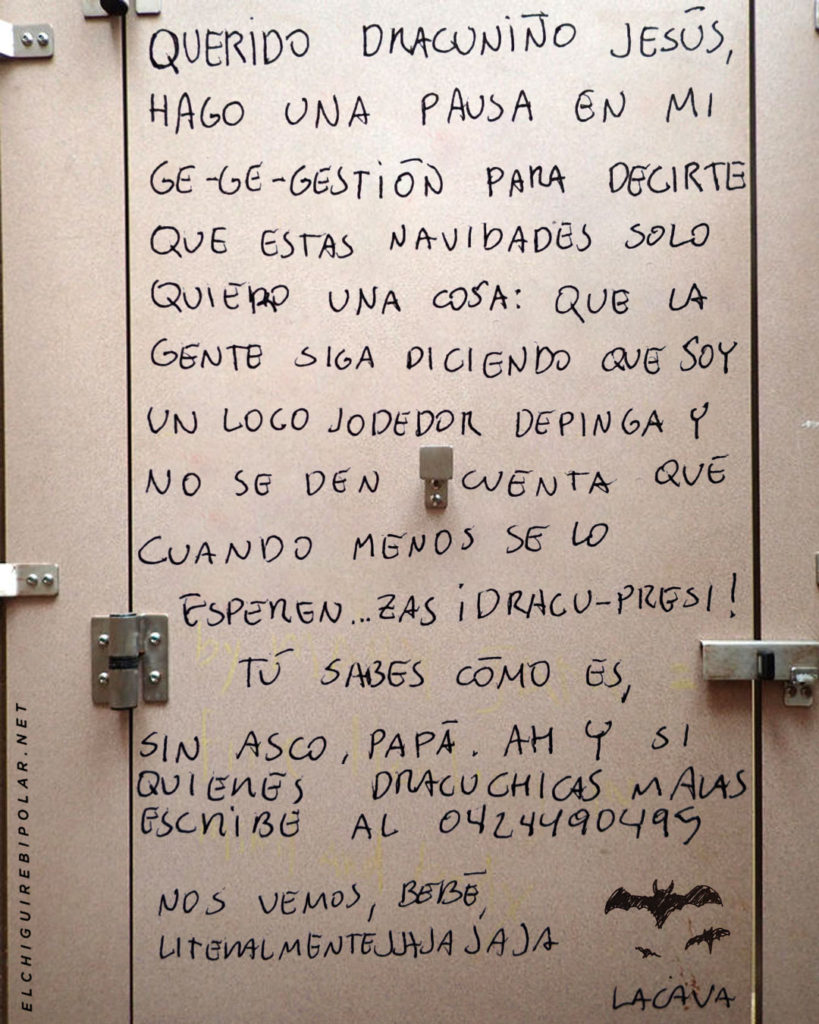 QUERIDO DRACUNIÑO JESÚS,
HAGO UNA PAUSA EN MI
GE-GE-GESTIÓN PARA DECIRTE
QUE ESTAS NAVIDADES SOLO
QUIERO UNA COSA: QUE LA
GENTE SIGA DICIENDO QUE SOY
UN LOCO JODEDOR DEPINGA Y
NO SE DEN CUENTA QUE
CUANDO MENOS SE LO
ESPEREN...ZAS ¡DRACU-PRESI!
TÚ SABES CÓMO ES,
SIN ASCO, PAPÁ. AH Y SI
QUIERES DRACUCHICAS MALAS
ESCRIBE AL 04244904495
NOS VEMOS, BEBÉ,
LITERALMENTEJAJAJAJA
LACAVA
ELCHIGUIREBIPOLAR.NET